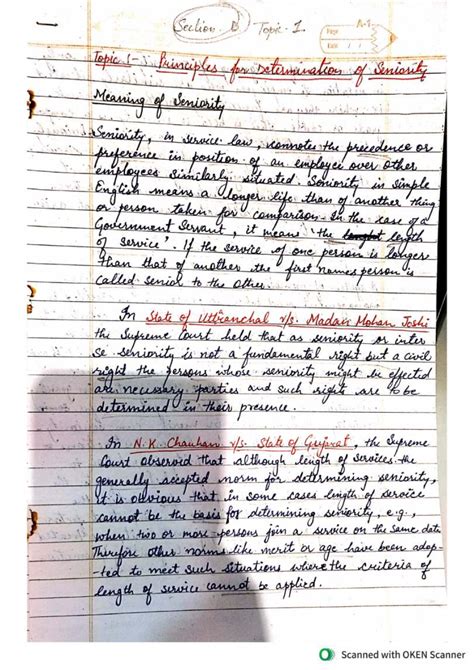 Section D Topic-1.
A-1
Page
Date / /
Topic 1- Principles for Determination of Seniority
Meaning of Seniority
Seniority, in service law, connotes the precedence or
preference in position of an employee over other
employees similarly situated. Seniority in simple
English means a longer life than of another thing
or person taken for comparison. In the case of a
Government Servant, it means 'the length
of service'. If the service of one person is longer
than that of another the first names person is
called senior to the other.
In State of Uttranchal v/s. Madan Mohan Joshi
the Supreme Court held that as seniority or inter
se seniority is not a fundamental right but a civil
right the persons whose seniority might be effected
are necessary parties and such rights are to be
determined in their presence.
In N.K. Chauhan v/s. State of Gujrat, the Supreme
Court observed that although length of services the
generally accepted norm for determining seniority,
it is obvious that in some cases length of service
cannot be the basis for determining seniority, e.g.,
when two or more persons join a service on the same date
Therefore other norms like merit or age have been adop-
ted to meet such situations where the criteria of
length of service cannot be applied.
Scanned with OKEN Scanner